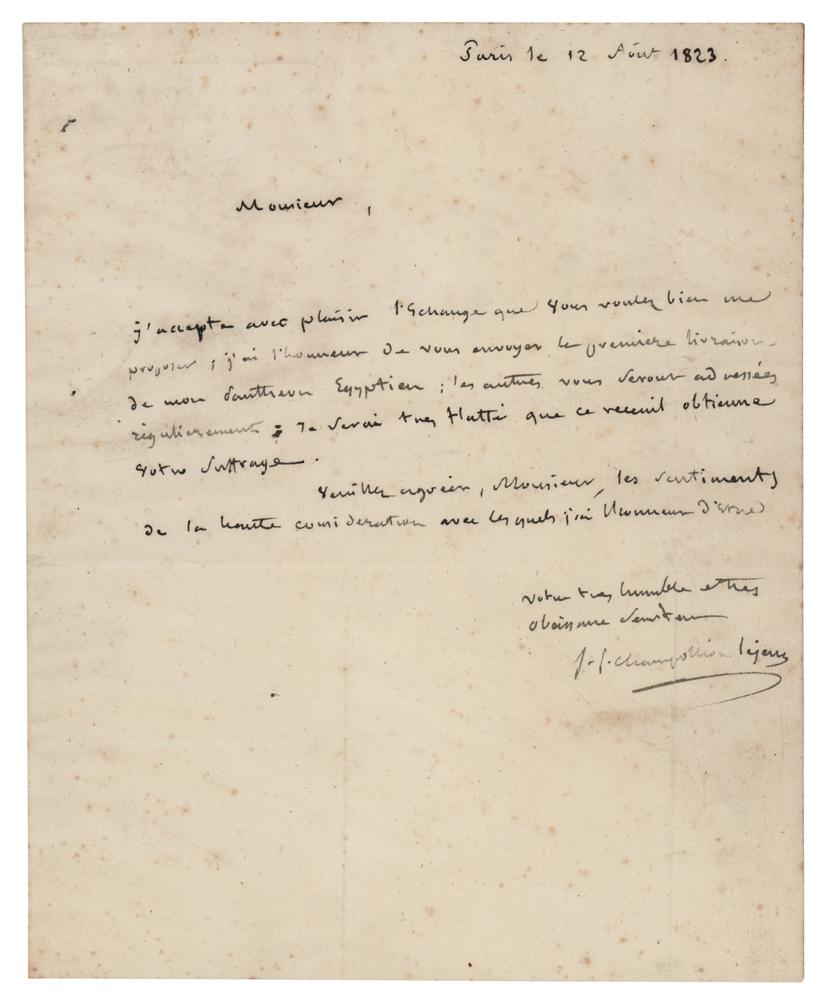 Paris le 12 Août 1823.
Monsieur,
j'accepte avec plaisir l'Echange que vous voulez bien me
proposer ; j'ai l'honneur de vous envoyer la premiere livraison
de mon Panthéon Egyptien ; les autres vous seront adressées
régulierement ; Je serai très flatté que ce receuil obtienne
votre suffrage.
Veuillez agréer, Monsieur, les sentiments
de la haute consideration avec lesquels j'ai l'honneur d'etre
votre tres humble et tres
obeissant serviteur
J. f. champollion lejeune